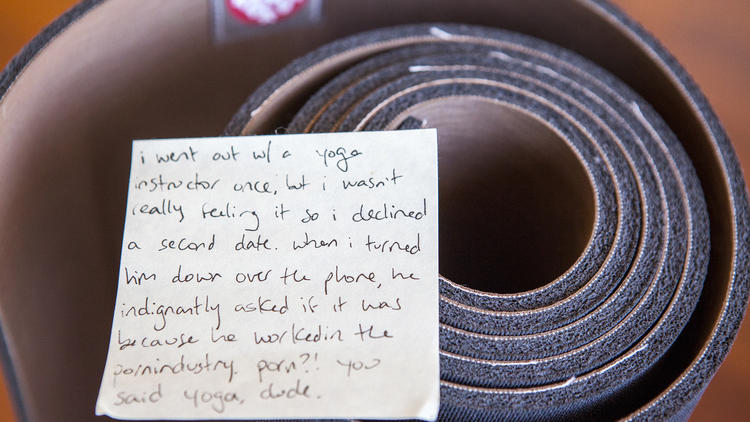 i went out w/ a yoga
instructor once, but i wasn't
really feeling it so i declined
a second date. when i turned
him down over the phone, he
indignantly asked if it was
because he workedin the
pornindustry. porn?! you
said yoga, dude.